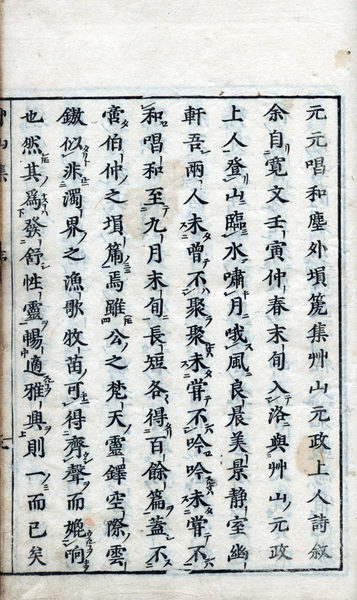 元元唱和塵外塤箎集艸山元政上人詩叙
余自寛文壬寅仲春末旬入洛與艸山元政
上人登山臨水嘯月哦風良晨美景静室幽
軒吾兩人未曽不聚聚未甞不吟吟未甞不
和唱和至九月末旬長短各得百餘篇蓋不
啻伯仲之塤篪焉雖公之梵天靈鐸空際雲
鏾似非濁界之漁歌牧苗可得齊聲而嫓响
也然其為發舒性靈暢適雅典則一而已矣